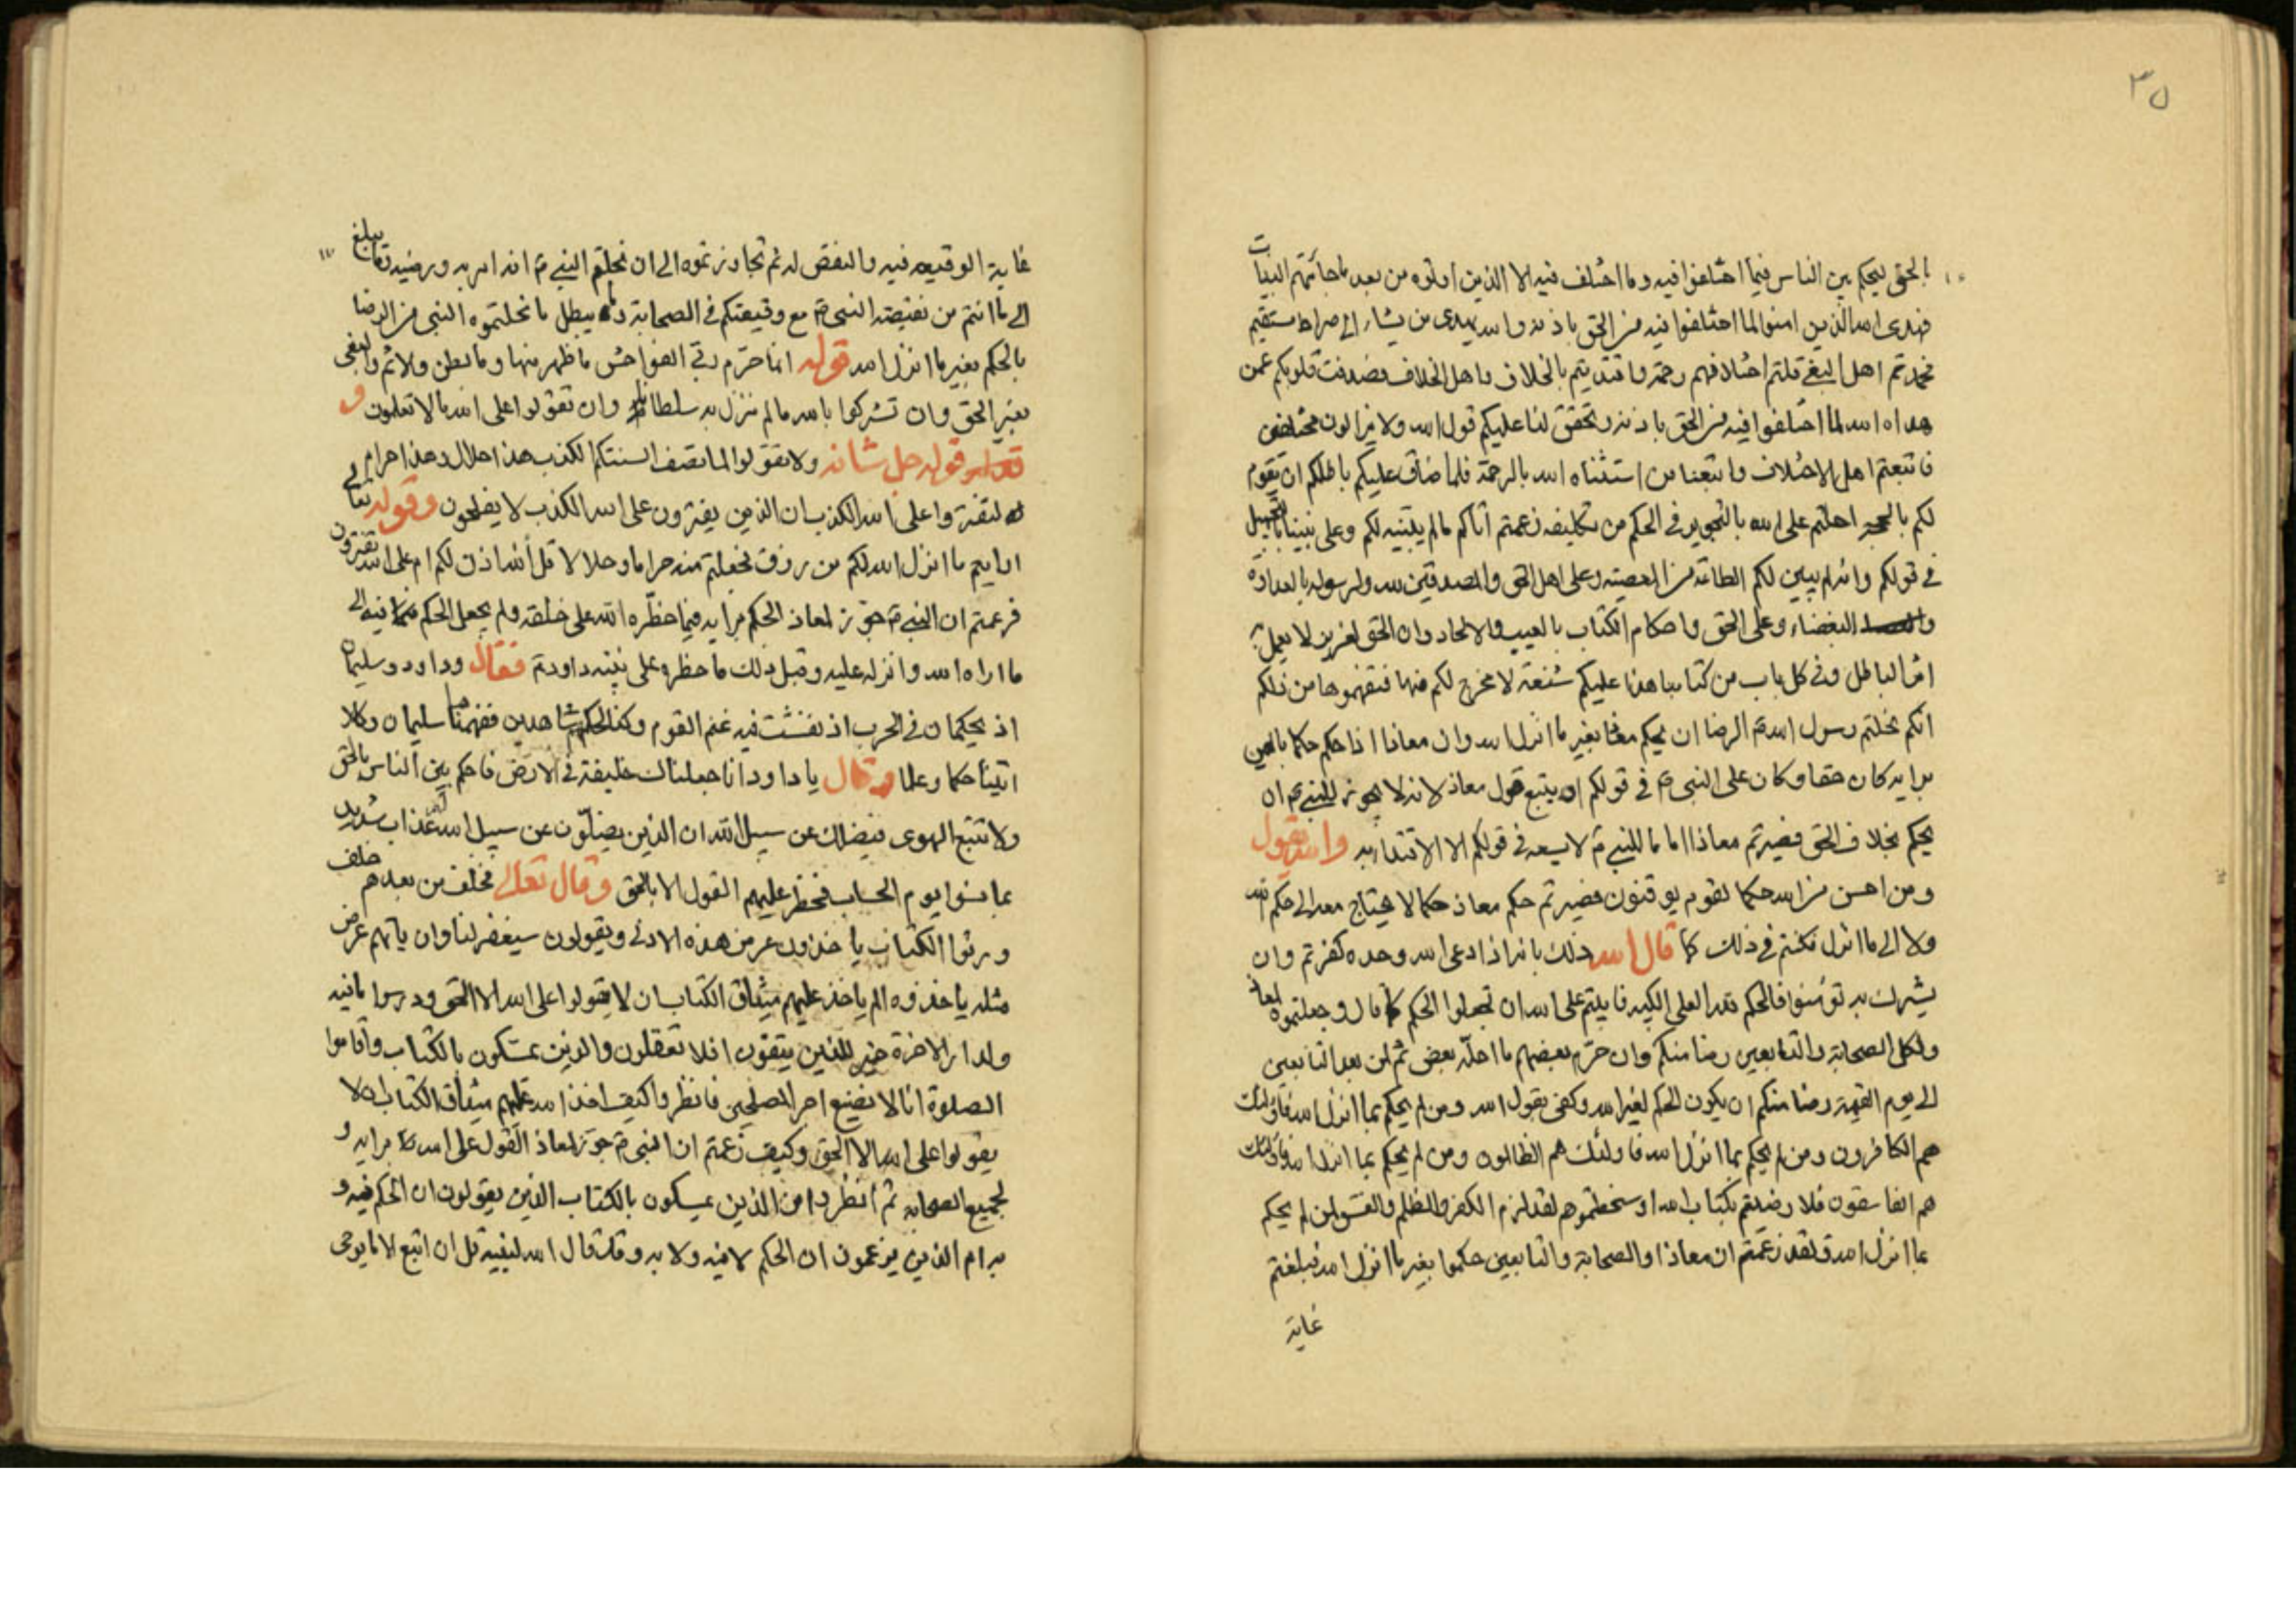 ٣٥
بالحق ليحكم بين الناس فيما اختلفوا فيه وما اختلف فيه الا الذين اوتوه من بعد ما جائتهم البينات
فهدى الله الذين امنوا لما اختلفوا فيه من الحق باذنه والله يهدى من يشاء الى صراط مستقيم
فحمدتم اهل البغى قلتم اختلافهم رحمة واقتديتم بالخلاف واهل الخلاف وصدفت قلوبكم عمن
هداه الله لما اختلفوا فيه من الحق باذنه وتحقق لنا عليكم قول الله ولا يزالون مختلفين
فاتبعتم اهل الاختلاف واتبعنا من استثناه الله بالرحمة فلما ضاق عليكم باطلكم ان يقوم
لكم بالحجة احلتم على الله بالتجوير في الحكم من تكليفه زعمتم اتاكم ما لم يبينه لكم وعلى نبينا بالتجهيل
في قولكم وانه لم يبين لكم الطاعة من المعصية وعلى اهل الحق والمصدقين لله ولرسوله بالعداوة
والبغضاء وعلى الحق واحكام الكتاب بالعيب والالحاد وان الحق لغيرين لا يعمل
الباطل وفى كل باب من كتابنا هذا عليكم شنعة لا مخرج لكم منها فتفهموها من ذلكم
انكم نحلتم رسول الله ص الرضا ان يحكم معاذا بغير ما انزل الله وان معاذا اذا حكم حكما بالعين
برايه كان حقا وكان على النبى ص في قولكم ان يتبع قول معاذ لانه لا يجوز للنبى ص ان
يحكم بخلاف الحق فصيرتم معاذا اماما للنبى ص لا يسعه في قولكم الا الاقتداء به والله يقول
ومن احسن من الله حكما لقوم يوقنون فصيرتم حكم معاذ حكما لا يحتاج معه الى حكم الله
ولا الى ما انزل فكنتم في ذلك كما قال الله ذلك بانه اذا دعى الله وحده كفرتم وان
يشرك به تؤمنوا فالحكم لله العلى الكبير فابيتم على الله ان تجعلوا الحكم كما قال وجعلتموه لمعاذ
ولكل الصحابة والتابعين رضا منكم وان حرم بعضهم ما احله بعض ثم لمن بعد التابعين
الى يوم القيمة رضا منكم ان يكون الحكم لغير الله وكفى بقول الله ومن لم يحكم بما انزل الله فاولئك
هم الكافرون ومن لم يحكم بما انزل الله فاولئك هم الظالمون ومن لم يحكم بما انزل الله فاولئك
هم الفاسقون فلا رضيتم بكتاب الله او سخطتموهم لقد لزم الكفر والظلم والفسق لمن لم يحكم
بما انزل الله ولقد زعمتم ان معاذا والصحابة والتابعين حكموا بغير ما انزل الله فبلغتم
غاية
غاية الوقيعه فيه والنقض له ثم تجاوزتموه الى ان نحلتم النبى ص انه امر به ورضيه تعالى يبلغ
الى ما انتم من نقيصة النبى ص مع وقيعتكم في الصحابة يبطل ما نحلتموه النبى من الرضا
بالحكم بغير ما انزل الله قوله انما حرم ربى الفواحش ما ظهر منها وما بطن والاثم والبغى
بغير الحق وان تشركوا بالله ما لم ننزل به سلطانا وان تقولوا على الله ما لا تعلمون و
قوله جل شانه ولا تقولوا لما تصف السنتكم الكذب هذا حلال وهذا حرام
لتفتروا على الله الكذب ان الذين يفترون على الله الكذب لا يفلحون وقوله تعالى
ارايتم ما انزل الله لكم من رزق فجعلتم منه حراما وحلالا قل آلله اذن لكم ام على الله تفترون
فزعمتم ان النبى ص جوز لمعاذ الحكم برايه فيما حظره الله على خلقه ولم يجعل الحكم فيه الى
ما اراه الله وانزله عليه وقبل ذلك ما حظر على نبيه داود ع فقال وداود وسليمان
اذ يحكمان في الحرث اذ نفشت فيه غنم القوم وكنا لحكمهم شاهدين ففهمناها سليمان وكلا
اتينا حكما وعلما وقال يا داود انا جعلناك خليفة في الارض فاحكم بين الناس بالحق
ولا تتبع الهوى فيضلك عن سبيل الله ان الذين يضلون عن سبيل الله لهم عذاب شديد
بما نسوا يوم الحساب فحظر عليهم القول الا بالحق وقال تعالى فخلف من بعدهم خلف
ورثوا الكتاب ياخذون عرض هذه الادنى ويقولون سيغفر لنا وان ياتهم عرض
مثله ياخذوه الم ياخذ عليهم ميثاق الكتاب ان لا يقولوا على الله الا الحق ودرسوا ما فيه
ولدار الاخرة خير للذين يتقون افلا تعقلون والذين يمسكون بالكتاب واقاموا
الصلوة انا لا نضيع اجر المصلحين فانظروا كيف اخذ الله عليهم ميثاق الكتاب الا
يقولوا على الله الا الحق وكيف زعمتم ان النبى ص جوز لمعاذ القول على الله برايه و
لجميع الصحابة ثم انظروا من الذين يمسكون بالكتاب الذين يقولون ان الحكم فيه و
به ام الذين يزعمون ان الحكم لا فيه ولا به وقد قال الله لنبيه قل ان اتبع الا ما يوحى